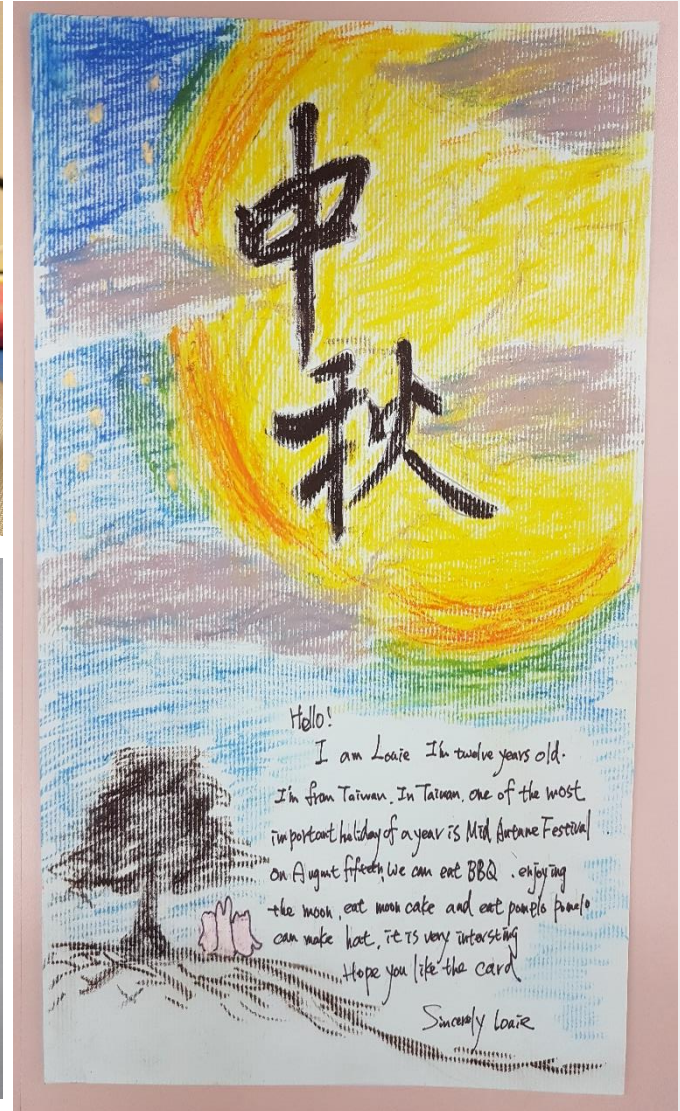 中
秋
Hello!
I am Loaie I'm twelve years old.
I'm from Taiwan. In Taiwan, one of the most
important holiday of a year is Mid Autane Festival
on Augunt fifteen, we can eat BBQ . enjoying
the moon, eat moon cake and eat pomplo pomelo
can make hat, it is very intersting
Hope you like the card
Sincerely Loaie